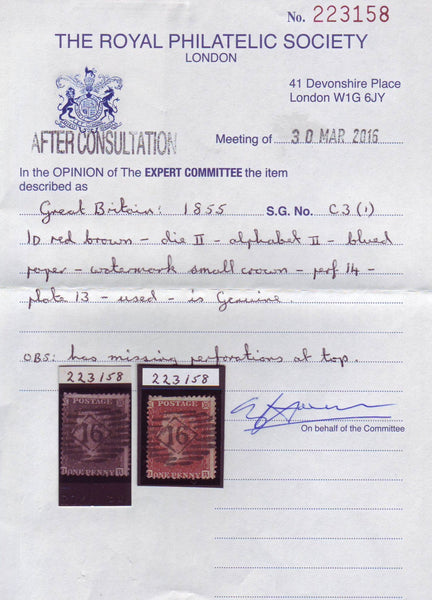 No. 223158
THE ROYAL PHILATELIC SOCIETY
LONDON
41 Devonshire Place
London W1G 6JY
AFTER CONSULTATION
Meeting of 30 MAR 2016
In the OPINION of The EXPERT COMMITTEE the item
described as
Great Britain: 1855 S.G. No. C3(1)
1D red brown - die II - alphabet II - blued
paper - watermark small crown - perf 14 -
plate 13 - used - is Genuine.
OBS: has missing perforations at top.
223158 223158
POSTAGE POSTAGE
16 16
ONE PENNY ONE PENNY
On behalf of the Committee